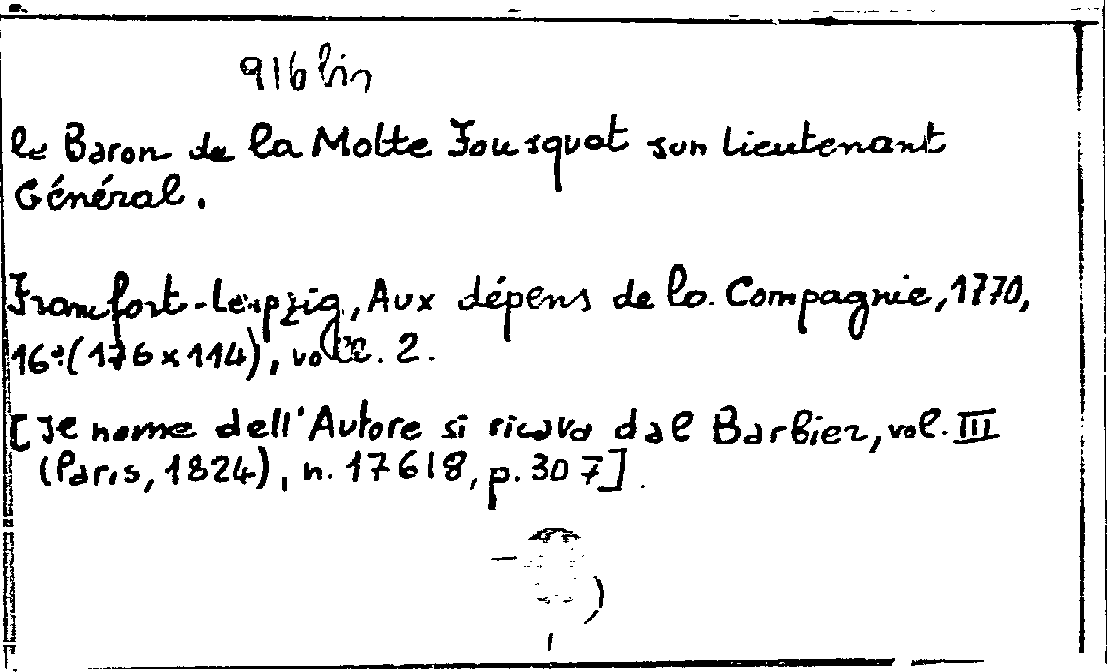 916 bis
le Baron de la Motte Fousquat son lieutenant
Général.
Francfort-Leipzig, Aux dépens de la Compagnie, 1770,
16º (176 x 114), voll. 2.
[Il nome dell'Autore si ricava dal Barbier, vol. III
(Paris, 1824), n. 17618, p. 307].